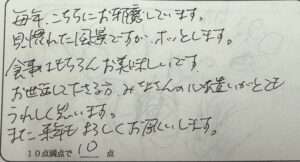 毎年、こちらにお邪魔しています。
見慣れた風景ですが、ホッとします。
食事はもちろんお美味しいです。
お世話して下さる方、みなさんの心遣いがとても
うれしく思います。
また来年もよろしくお願いします。
10点満点で 10 点